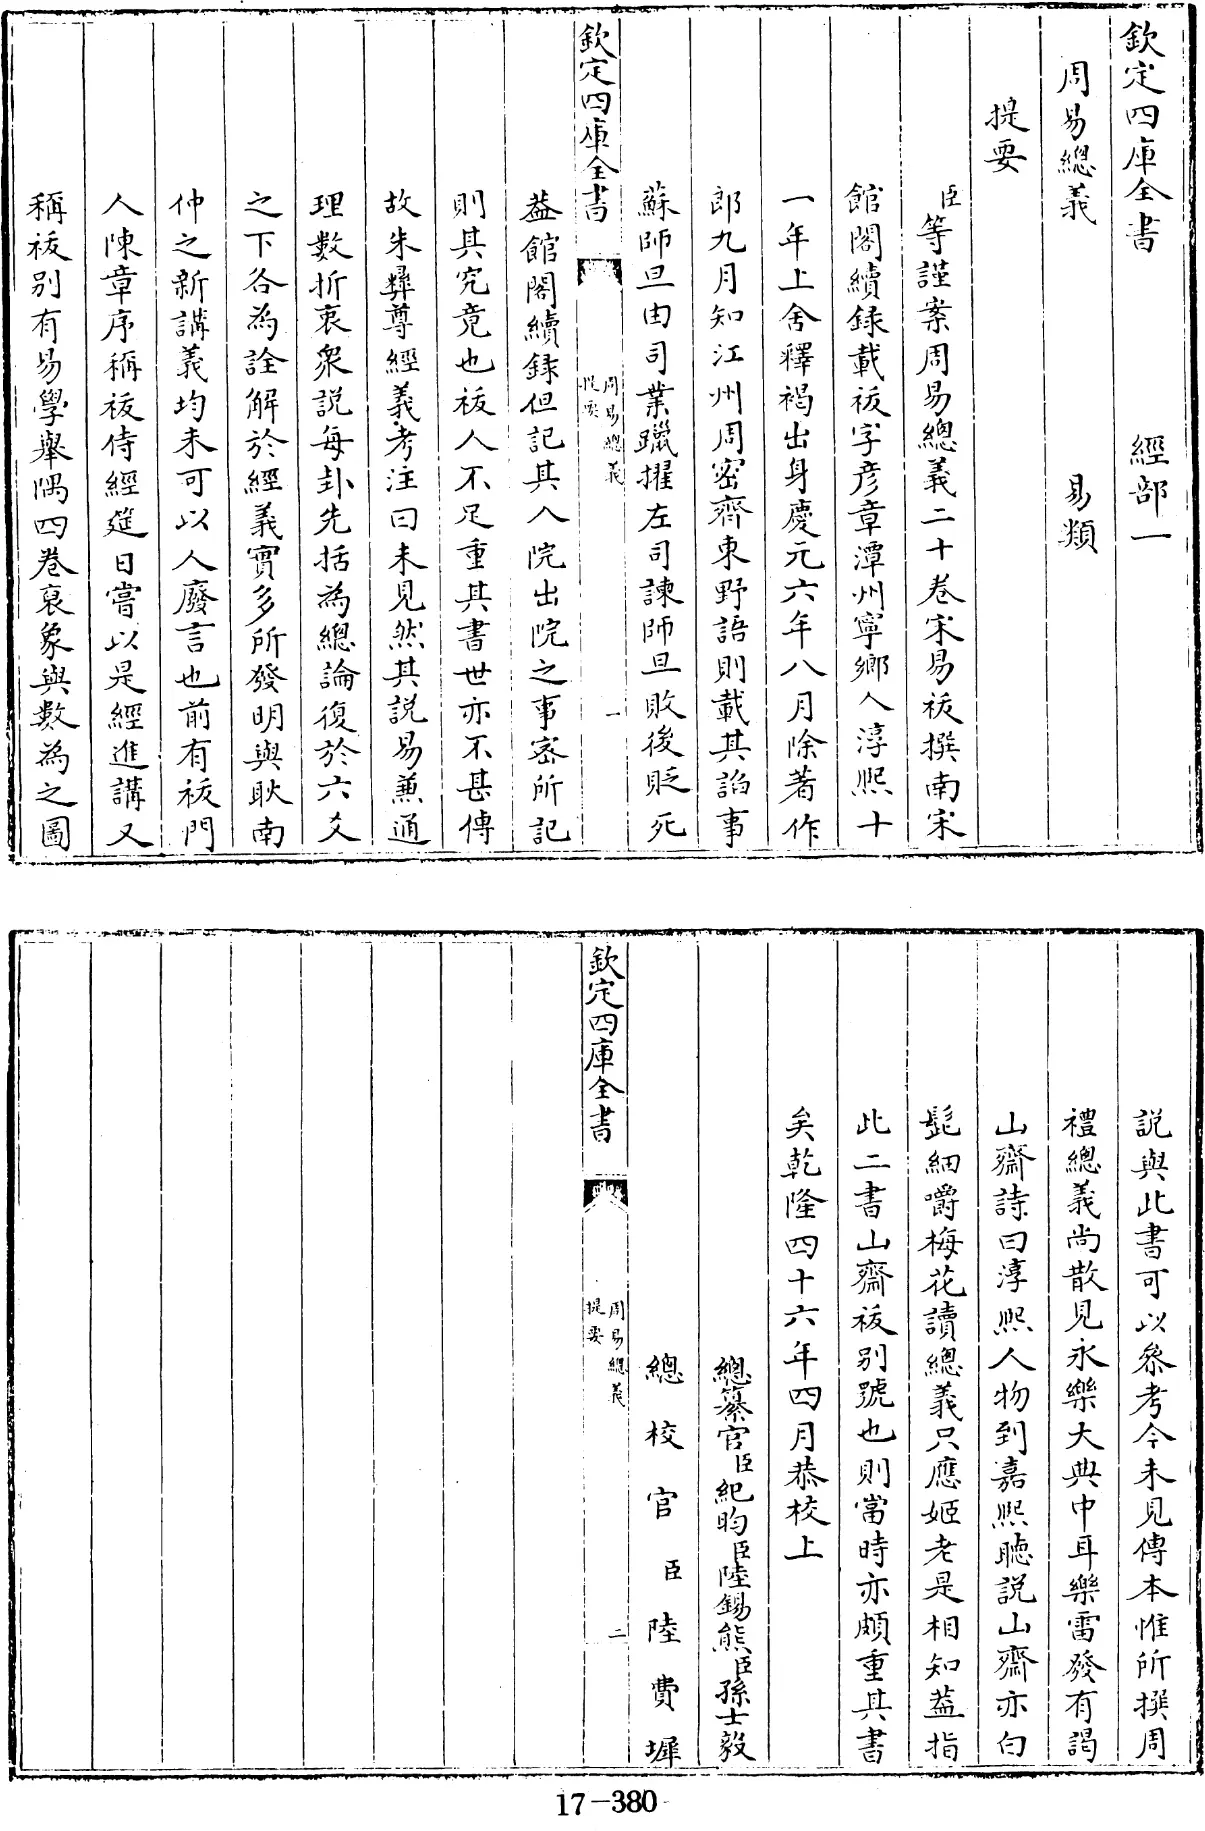 欽定四庫全書　經部一
周易總義　易類
提要
臣等謹案周易總義二十卷宋易祓撰南宋
館閣續録載祓字彦章潭州寧鄉人淳熙十
一年上舍釋褐出身慶元六年八月除著作
郎九月知江州周密齊東野語則載其諂事
蘇師旦由司業躐擢左司諫師旦敗後貶死
欽定四庫全書
周易總義
提要
一
葢館閣續録但記其入院出院之事宻所記
則其究竟也祓人不足重其書世亦不甚傳
故朱彛尊經義考注曰未見然其説易兼通
理數折衷衆説每卦先括為總論復於六爻
之下各為詮解於經義實多所發明與耿南
仲之新講義均未可以人廢言也前有祓門
人陳章序稱祓侍經筵日嘗以是經進講又
稱祓别有易學舉隅四卷裒象與數為之圖
説與此書可以叅考今未見傳本惟所撰周
禮總義尚散見永樂大典中耳樂雷發有謁
山齋詩曰淳熙人物到嘉熙聽説山齋亦白
髭細嚼梅花讀總義只應姬老是相知葢指
此二書山齋祓别號也則當時亦頗重其書
矣乾隆四十六年四月恭校上
總纂官臣紀昀臣陸錫熊臣孫士毅
總校官臣陸費墀
欽定四庫全書
周易總義
提要
二
17-380